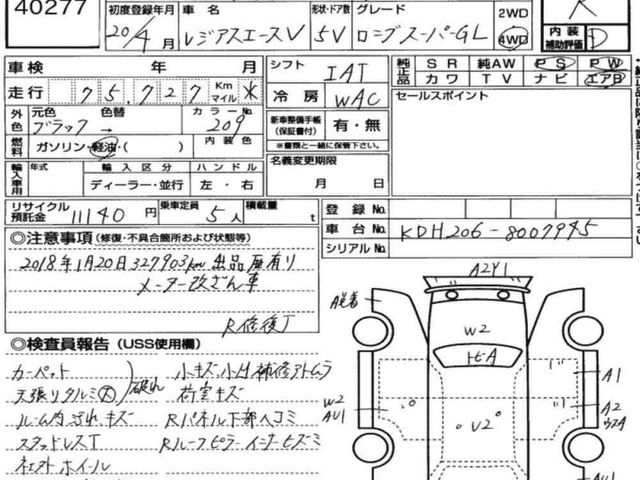 40277
初度登録年月 車名 形状・ドア数 グレード 2WD
20/4月 レジアスエースV 5V ロングスーパーGL 4WD
R
内装補助評価 D
車検 年 月 シフト IAT 純正品 SR 純AW PS PW
カワ TV ナビ エアB
走行 75,727 Km マイル ※ 冷房 WAC セールスポイント
外色 元色 色替 カラーNo.
ブラック → 209
新車整備手帳(保証書付) 有・無
※書類と一緒に保管して下さい。
燃料 ガソリン・軽油・( ) 内装色
名義変更期限
月 日
輸入車用 年式 輸入区分 ハンドル
ディーラー・並行 左・右
リサイクル預託金 11140円 乗車定員 5人 積載量 t
登録No.
車台No. KDH206-8007945
シリアルNo.
◎注意事項(修復・不具合箇所および状態等)
2018年1月20日327903km出品歴有り
メーター改ざん車
R修復了
◎検査員報告(USS使用欄)
カーペット 破れ 小キズ小凹補修アトムラ
天張りタルミ大 荷室キズ
ルーム内ヨゴレキズ Rパネル下部ヘコミ
スタッドレスT Rルーフピラーインナーヒズミ
社外ホイール
A2Y1
A光着
W2
トビA
A1
W2 AU1
A2
V2
AU1